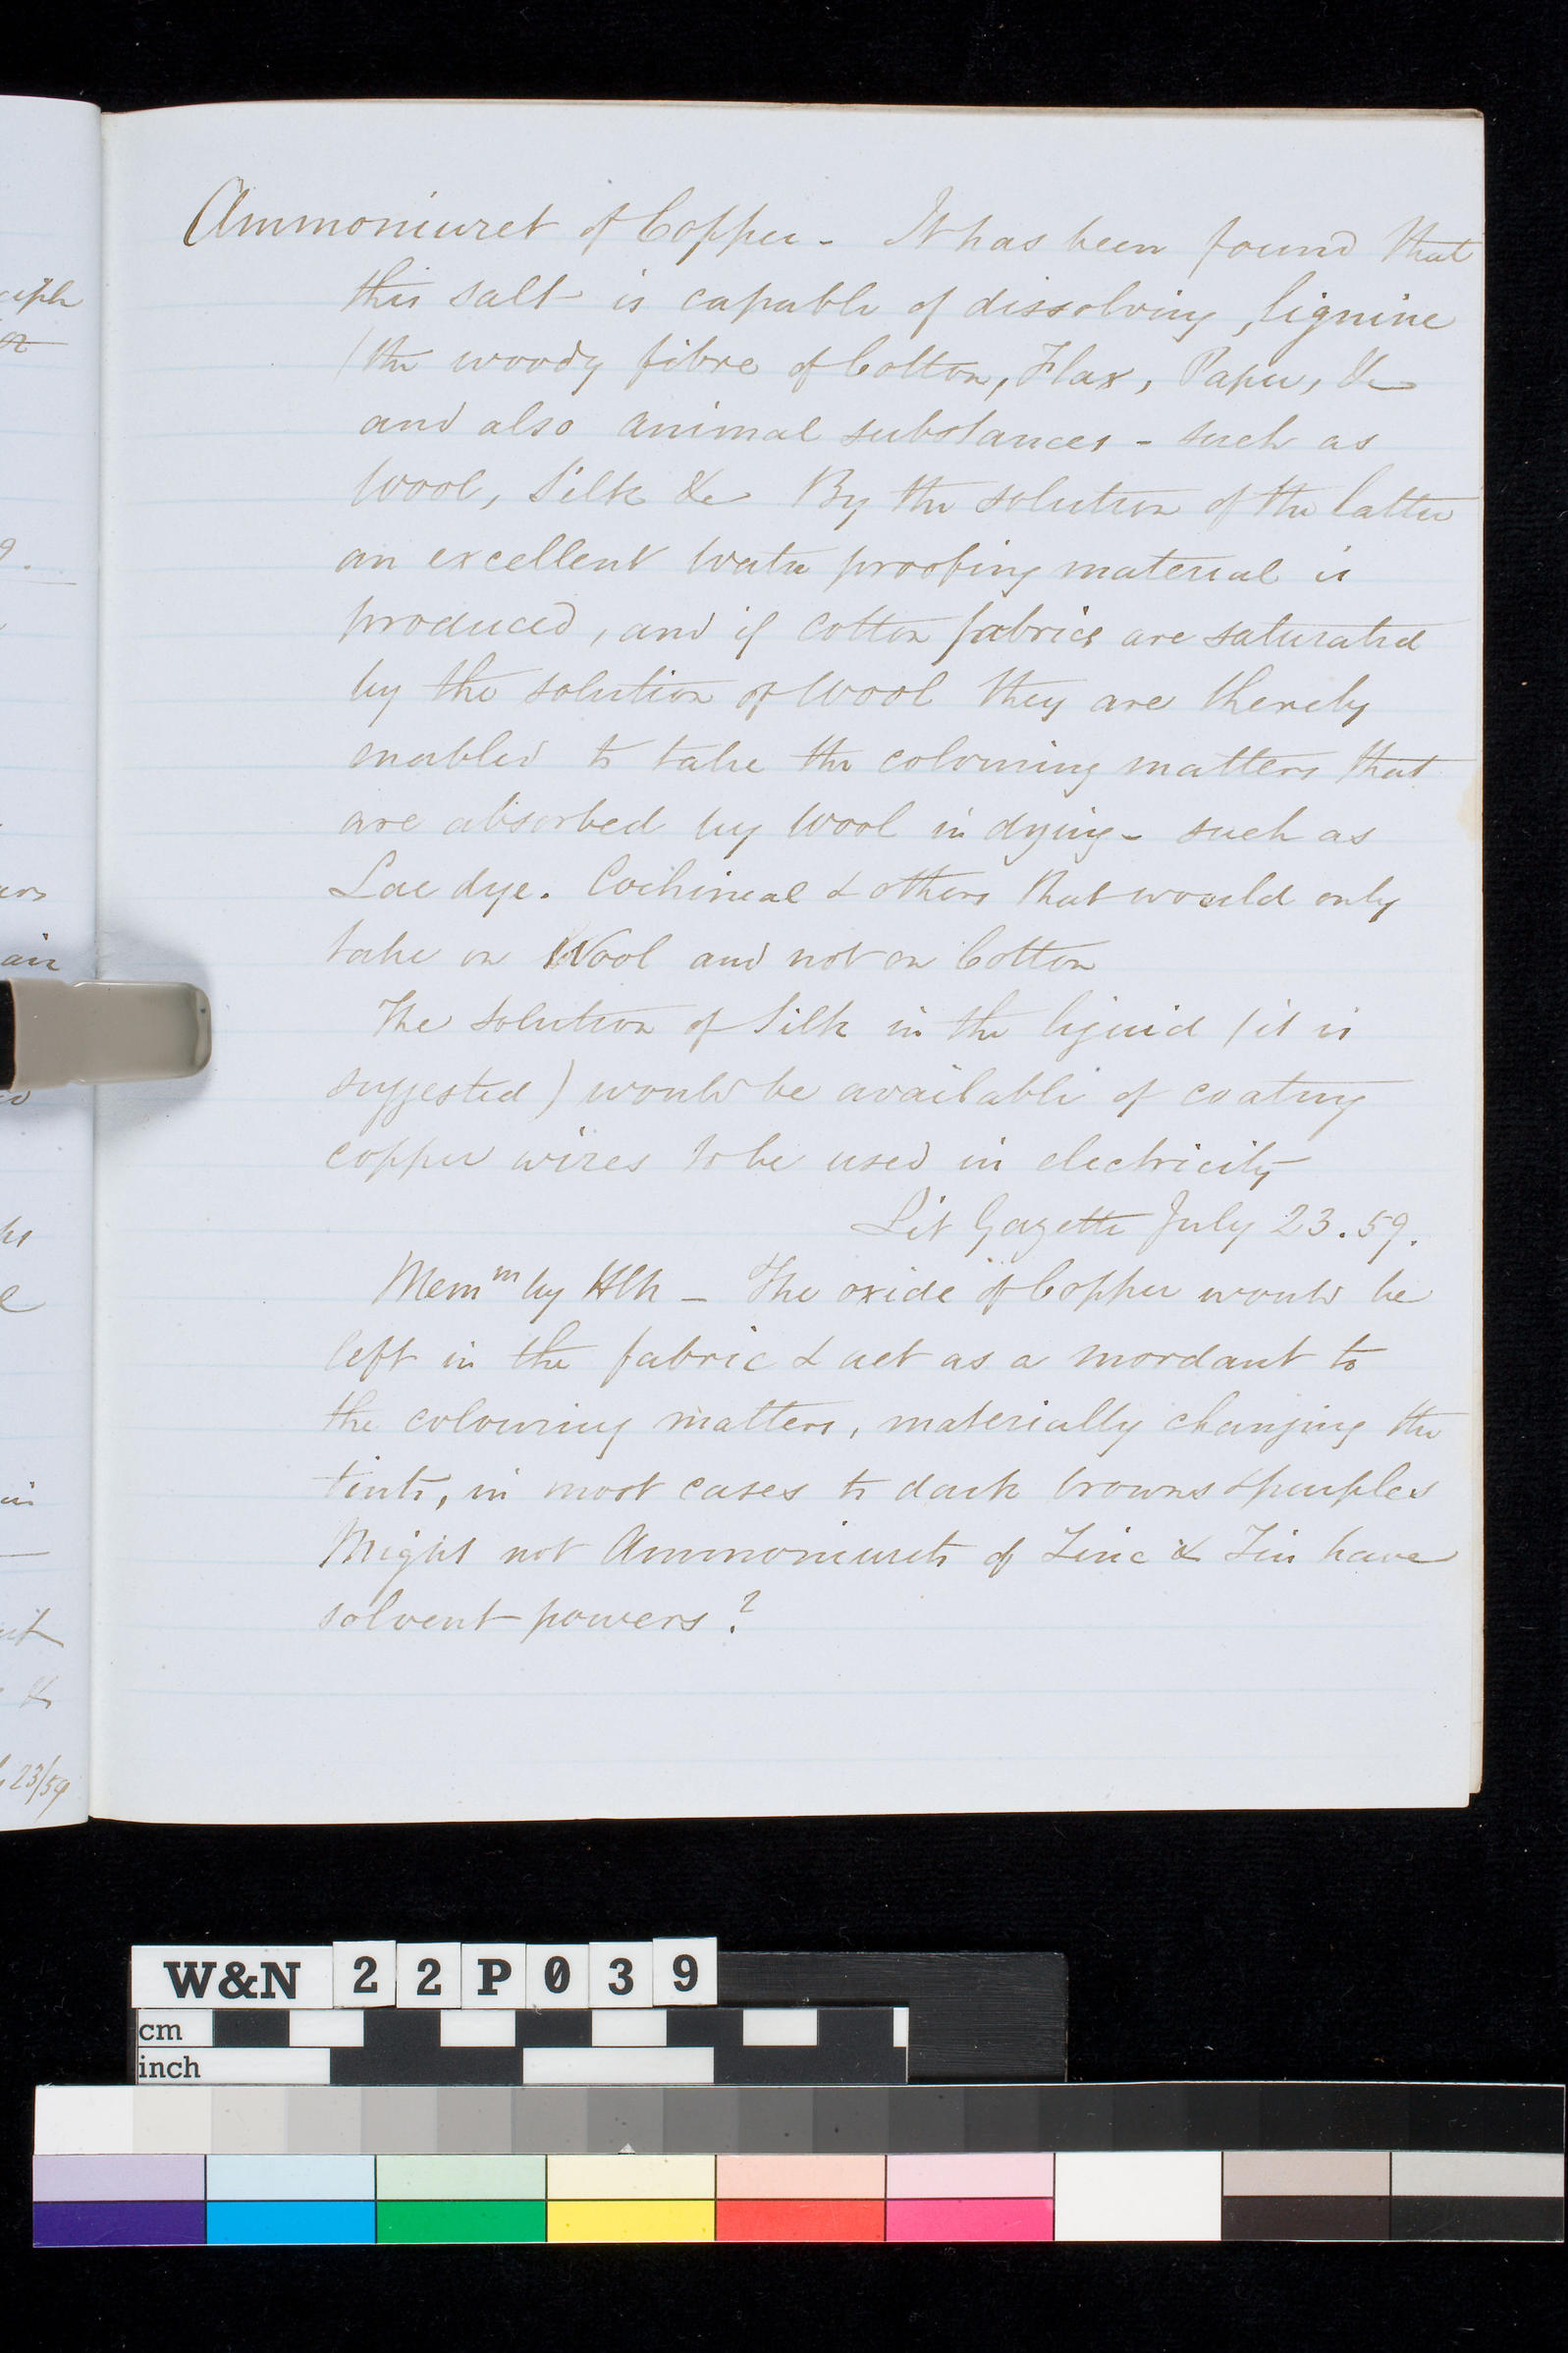 Ammoniuret of Copper - It has been found that
this salt is capable of dissolving, lignine
(the woody fibre of Cotton, Flax, Paper, &c
and also animal substances - such as
Wool, Silk &c By the solution of the latter
an excellent water proofing material is
produced, and if cotton fabrics are saturated
by the solution of Wool they are thereby
enabled to take the colouring matters that
are absorbed by Wool in dying - such as
Lac dye. Cochineal & others that would only
take on Wool and not on Cotton
The solution of Silk in the liquid (it is
suggested) would be available of coating
copper wires to be used in electricity
Lit Gazette July 23.59.
Memm by - The oxide of Copper would be
left in the fabric & act as a mordant to
the colouring matters, materially changing the
tints, in most cases to dark browns & purples
Might not Ammoniurets of Zinc & Tin have
solvent powers?
air
23/59
W&N 22P039
cm
inch